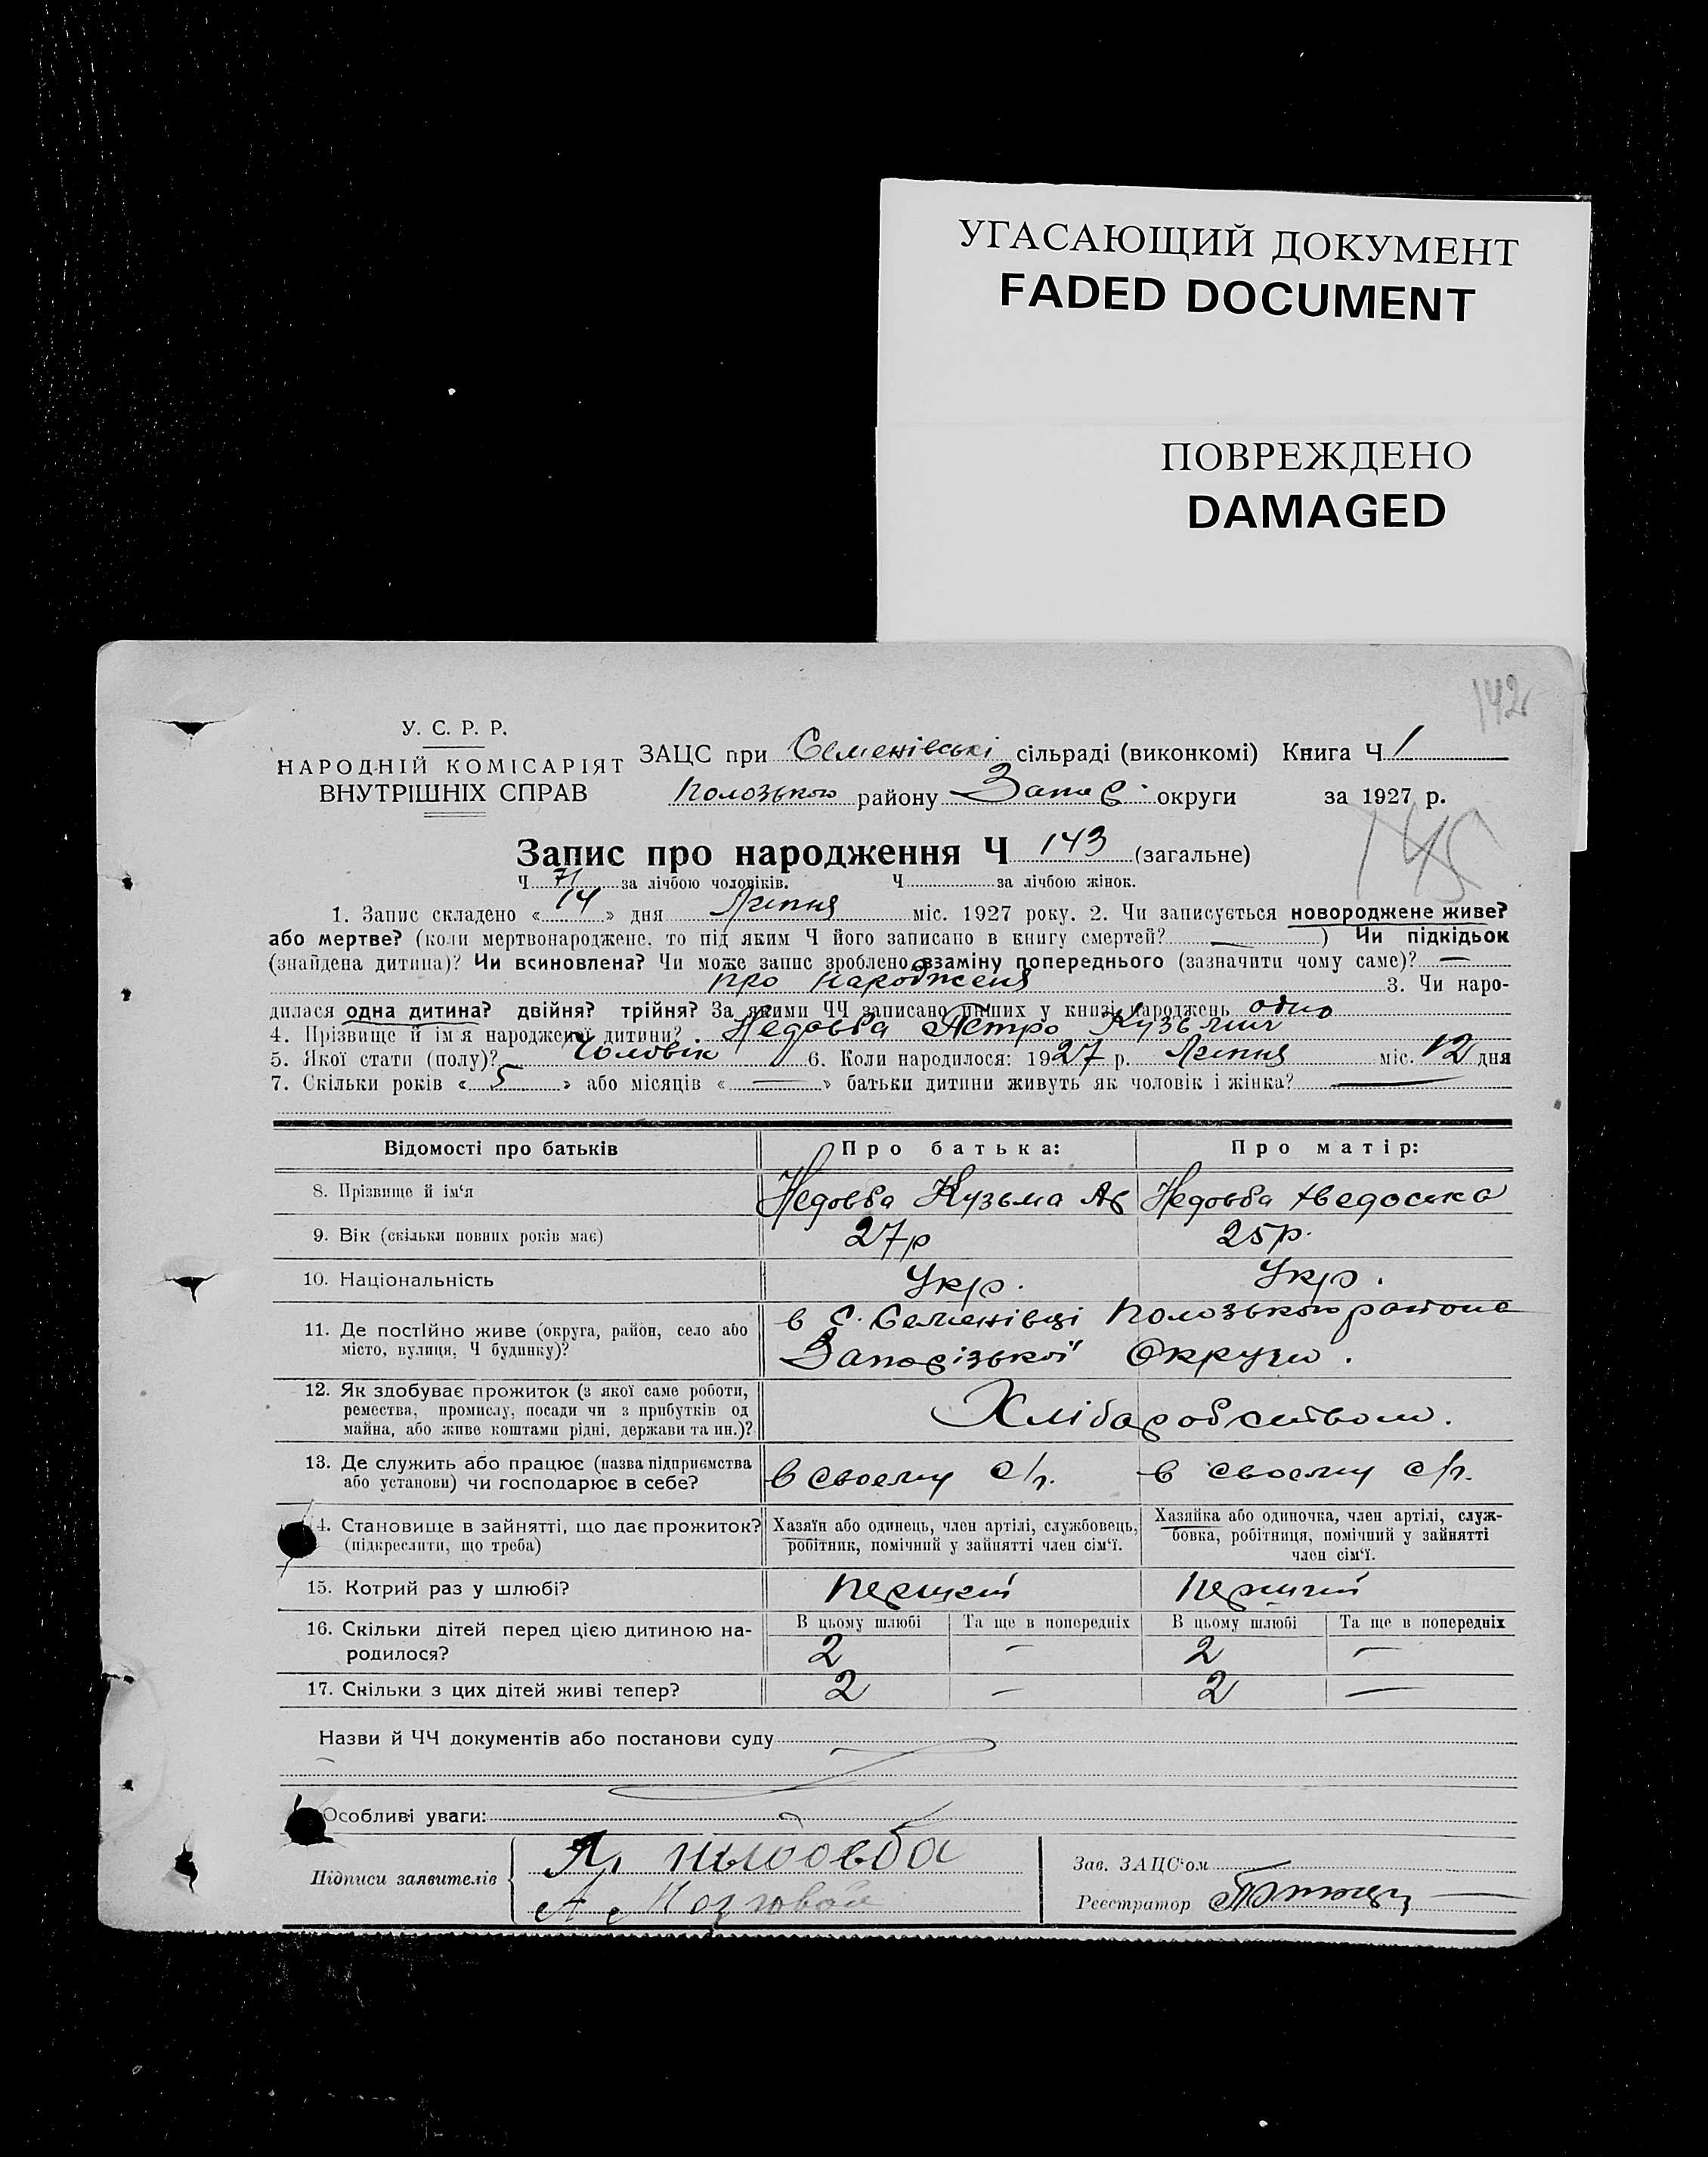 УГАСАЮЩИЙ ДОКУМЕНТ
FADED DOCUMENT
ПОВРЕЖДЕНО
DAMAGED
142
У. С. Р. Р.
НАРОДНІЙ КОМІСАРІЯТ
ВНУТРІШНІХ СПРАВ
ЗАЦС при Семенівські сільраді (виконкомі) Книга Ч 1
Полозького району Запор. округи за 1927 р.
145
Запис про народження Ч 143 (загальне)
Ч 71 за лічбою чоловіків. Ч за лічбою жінок.
1. Запис складено « 14 » дня Липня міс. 1927 року. 2. Чи записується новороджене живе?
або мертве? (коли мертвонароджене, то під яким Ч його записано в книгу смертей? — ) Чи підкідьок
(знайдена дитина)? Чи всиновлена? Чи може запис зроблено взаміну попереднього (зазначити чому саме)? —
про народженя 3. Чи наро-
дилася одна дитина? двійня? трійня? За якими ЧЧ записано инших у книзі народжень одно
4. Прізвище й ім'я народженої дитини? Недовба Петро Кузьмич
5. Якої стати (полу)? Чоловік 6. Коли народилося: 1927 р. Липня міс. 12 дня
7. Скільки років « 5 » або місяців « — » батьки дитини живуть як чоловік і жінка? —
Відомості про батьків Про батька: Про матір:
8. Прізвище й ім'я Недовба Кузьма Ав Недовба Хведоска
9. Вік (скільки повних років має) 27р 25р.
10. Національність Укр. Укр.
11. Де постійно живе (округа, район, село або
місто, вулиця, Ч будинку)?
в С. Семенівці Полозького района
Запорізької Округи.
12. Як здобуває прожиток (з якої саме роботи,
ремества, промислу, посади чи з прибутків од
майна, або живе коштами рідні, держави та ин.)?
Хліборобством.
13. Де служить або працює (назва підприємства
або установи) чи господарює в себе?
в своему с/г. в своему с/г.
14. Становище в зайнятті, що дає прожиток?
(підкреслити, що треба)
Хазяїн або одинець, член артілі, службовець,
робітник, помічний у зайнятті член сім'ї.
Хазяйка або одиночка, член артілі, служ-
бовка, робітниця, помічний у зайнятті
член сім'ї.
15. Котрий раз у шлюбі? Перший Перший
16. Скільки дітей перед цією дитиною на-
родилося?
В цьому шлюбі Та ще в попередніх В цьому шлюбі Та ще в попередніх
2 — 2 —
17. Скільки з цих дітей живі тепер? 2 — 2 —
Назви й ЧЧ документів або постанови суду
Особливі уваги:
Підписи заявителів
А. Мозговой
Зав. ЗАЦС'ом
Реєстратор